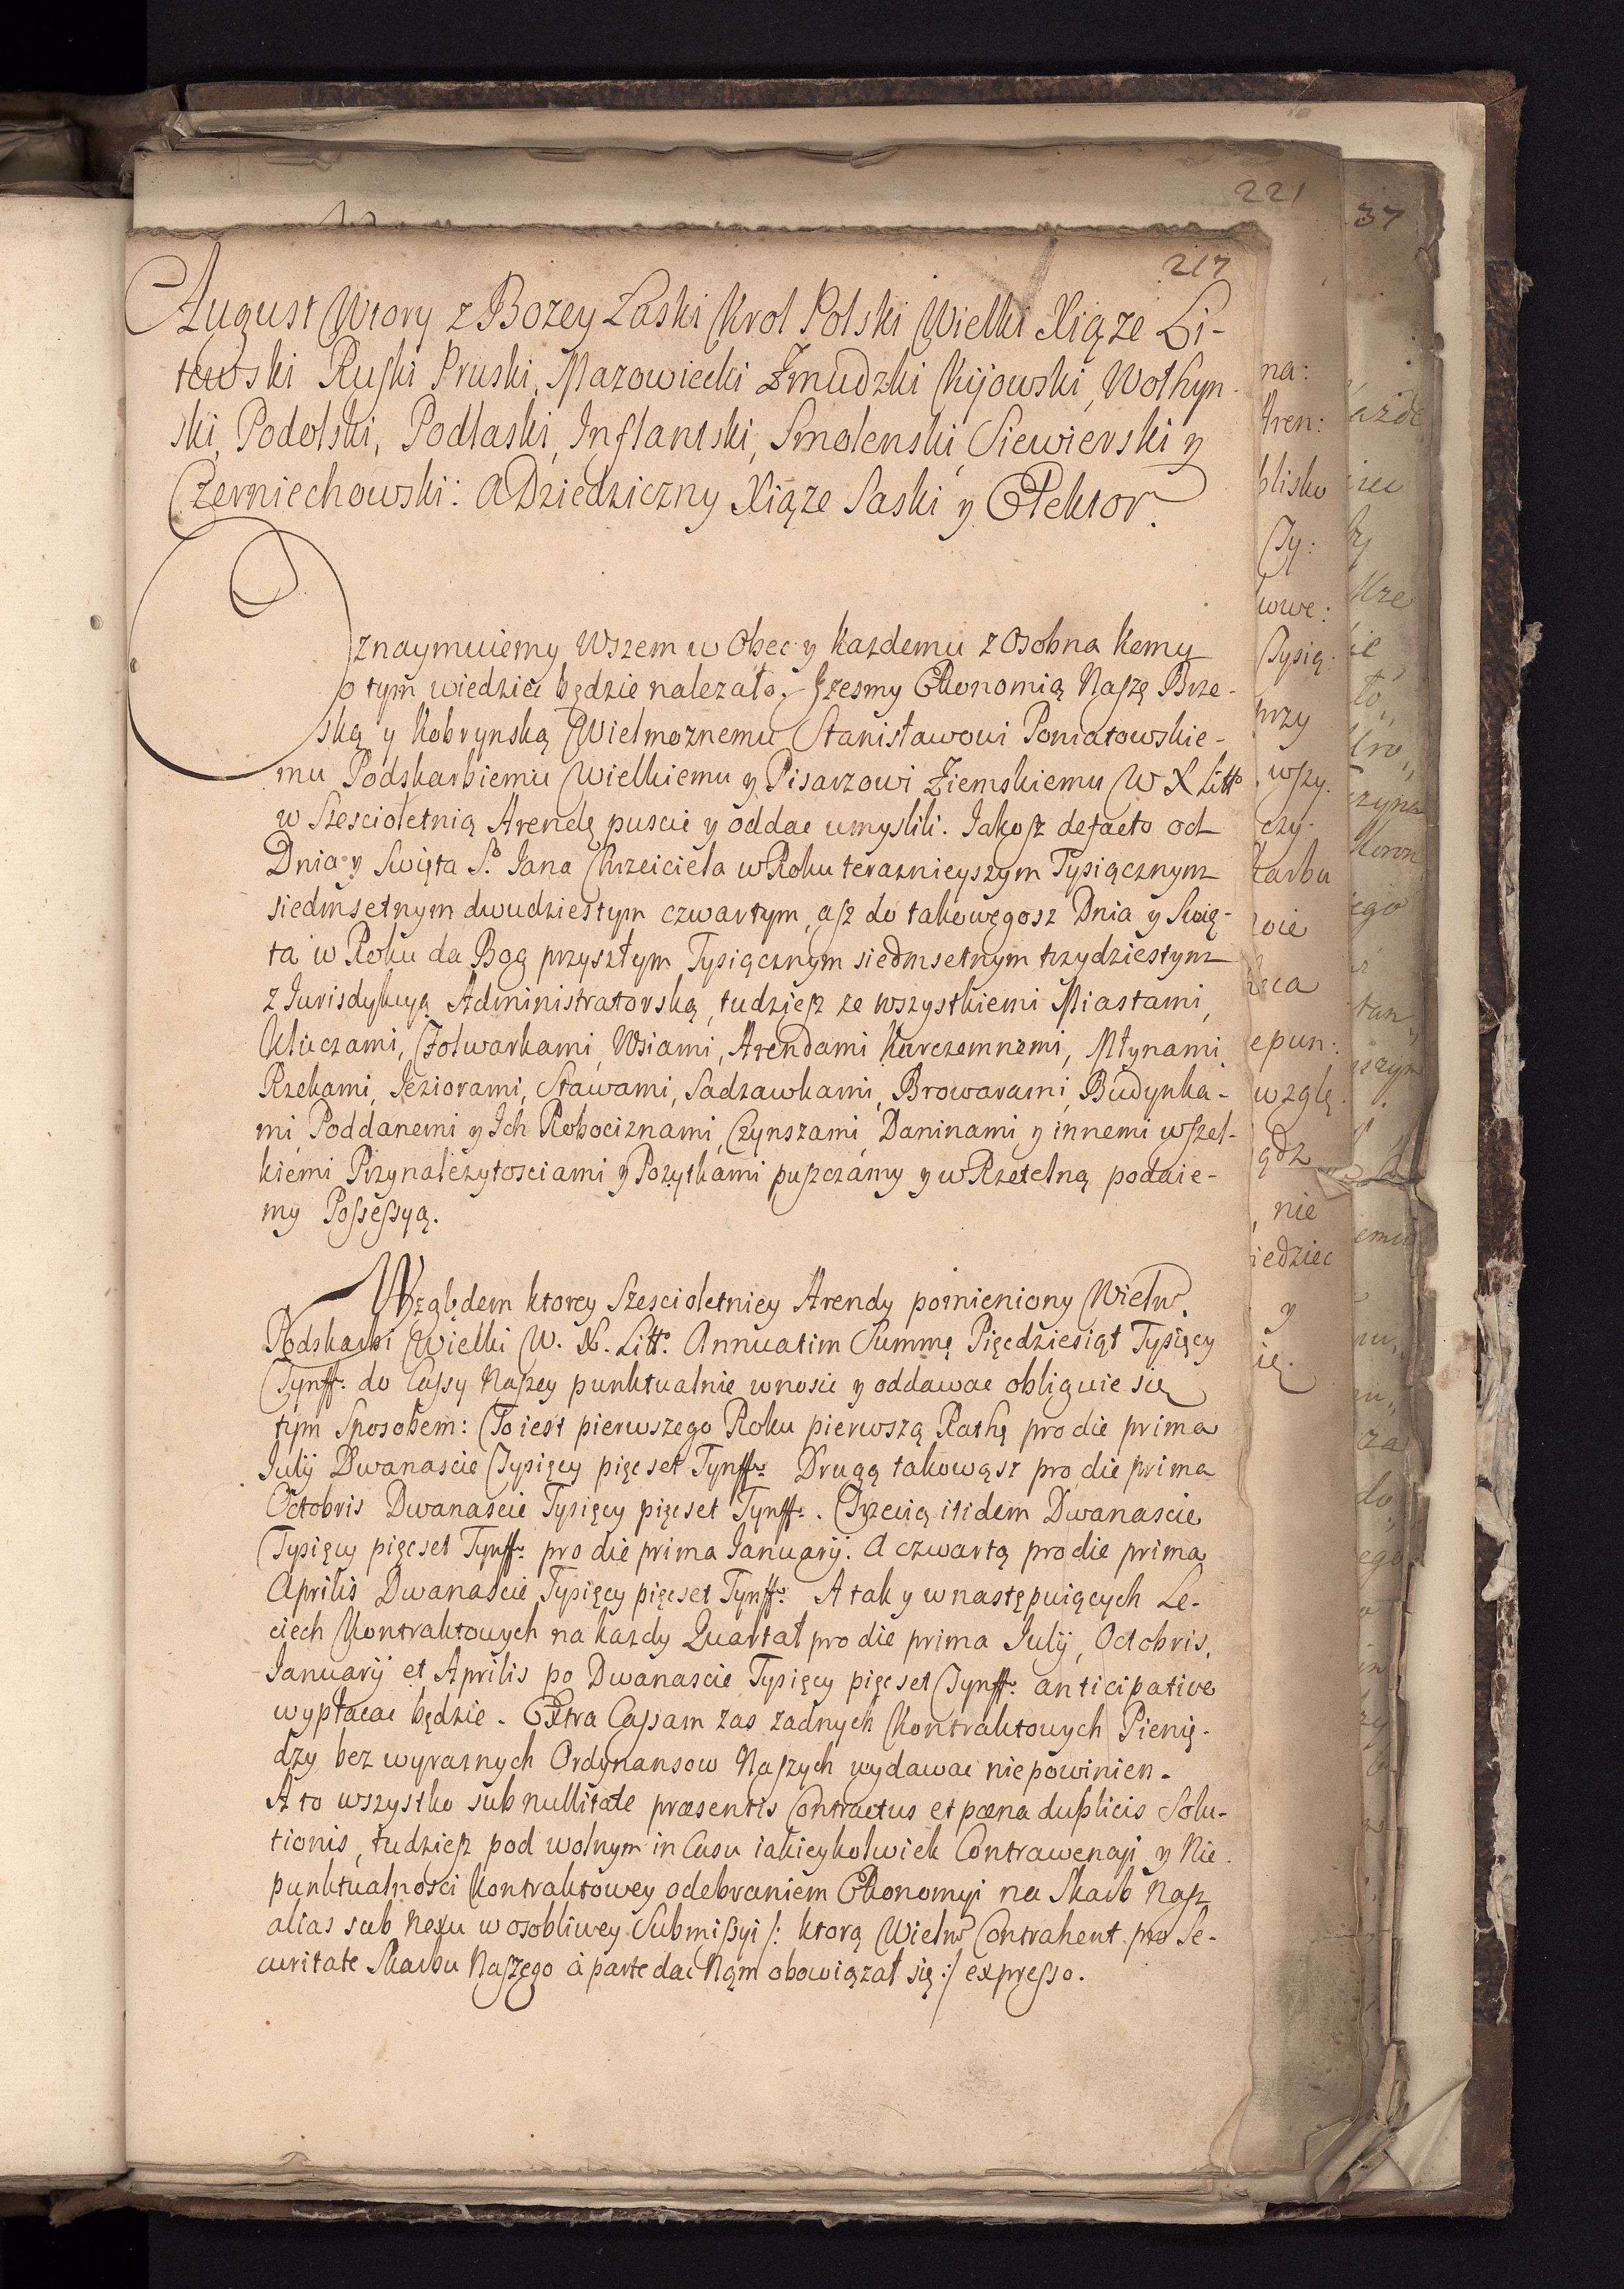 221
37
217
August Wtory z Bozey Łaski Krol Polski Wielki Xiąze Li-
tewski Ruski Pruski, Mazowiecki Zmudzki Kijowski, Wołhyn-
ski, Podolski, Podlaski, Inflantski, Smolenski, Siewierski y
Czerniechowski: A Dziedziczny Xiąze Saski y Elektor.
Oznaymuiemy Wszem w Obec y kazdemu z Osobna komu
o tym wiedziec będzie nalezało, Izesmy Ekonomią Naszę Brze-
ską y Kobrynską Wielmoznemu Stanisławowi Poniatowskie-
mu Podskarbiemu Wielkiemu y Pisarzowi Ziemskiemu W X Litto
w Szescioletnią Arendę puscic y oddac umyslili. Jakosz defacto od
Dnia y Swięta So. Jana Chrzciciela w Roku teraznieyszym Tysiącznym
siedmsetnym dwudziestym czwartym, asz do takowęgosz Dnia y Swię-
ta w Roku da Bog przyszłym Tysiącznym siedmsetnym trzydziestym
z Jurisdykcyą Administratorską, tudziesz ze wszystkiemi Miastami,
Kluczami, Folwarkami, Wsiami, Arendami Karczemnemi, Młynami
Rzekami, Jeziorami, Stawami, Sadzawkami, Browarami, Budynka-
mi Poddanemi y Ich Robociznami, Czynszami Daninami y innemi wszel-
kiemi Przynalezytosciami y Pozytkami puszczamy y w Rzetelną podaie-
my Possessyą.
Względem ktorey Szescioletniey Arendy pomieniony Wielm.
Podskarbi Wielki W. X. Litto. Annuatim Summę Pięcdziesiąt Tysięcy
Tynff. do Cassy Naszey punktualnie wnosic y oddawac obliguie się
tym Sposobem: To iest pierwszego Roku pierwszą Rathę pro die prima
Julij Dwanascie Tysięcy pięcset Tynff. Drugą takowąsz pro die prima
Octobris Dwanascie Tysięcy pięcset Tynff. Trzecią itidem Dwanascie
Tysięcy pięcset Tynff. pro die prima Januarij. A czwartą pro die prima
Aprilis Dwanascie Tysięcy pięcset Tynff. A tak y w następuiących Le-
ciech Kontraktowych na kazdy Quartał pro die prima Julij, Octobris,
Januarij et Aprilis po Dwanascie Tysięcy pięcset Tynff. anticipative
wypłacac będzie. Extra Cassam zas zadnych Kontraktowych Pienię-
dzy bez wyraznych Ordynansow Naszych wydawac niepowinien.
A to wszystko sub nullitate præsentis Contractus et pœna duplicis Solu-
tionis, tudziesz pod wolnym in Casu iakieykolwiek Contrawencyi y Nie-
punktualnosci Kontraktowey odebraniem Ekonomyi na Skarb Nasz
alias sub Nexu w osobliwey Submissyi /: ktorą Wielm Contrahent pro Se-
curitate Skarbu Naszego à parte dac Nąm obowiązał się :/ expresso.
na:
Aren:
blisko
Ty:
Tysią:
przy
wszy.
czy-
karbu
epun:
wzglę
gdz
nie
iedziec
y
ię.